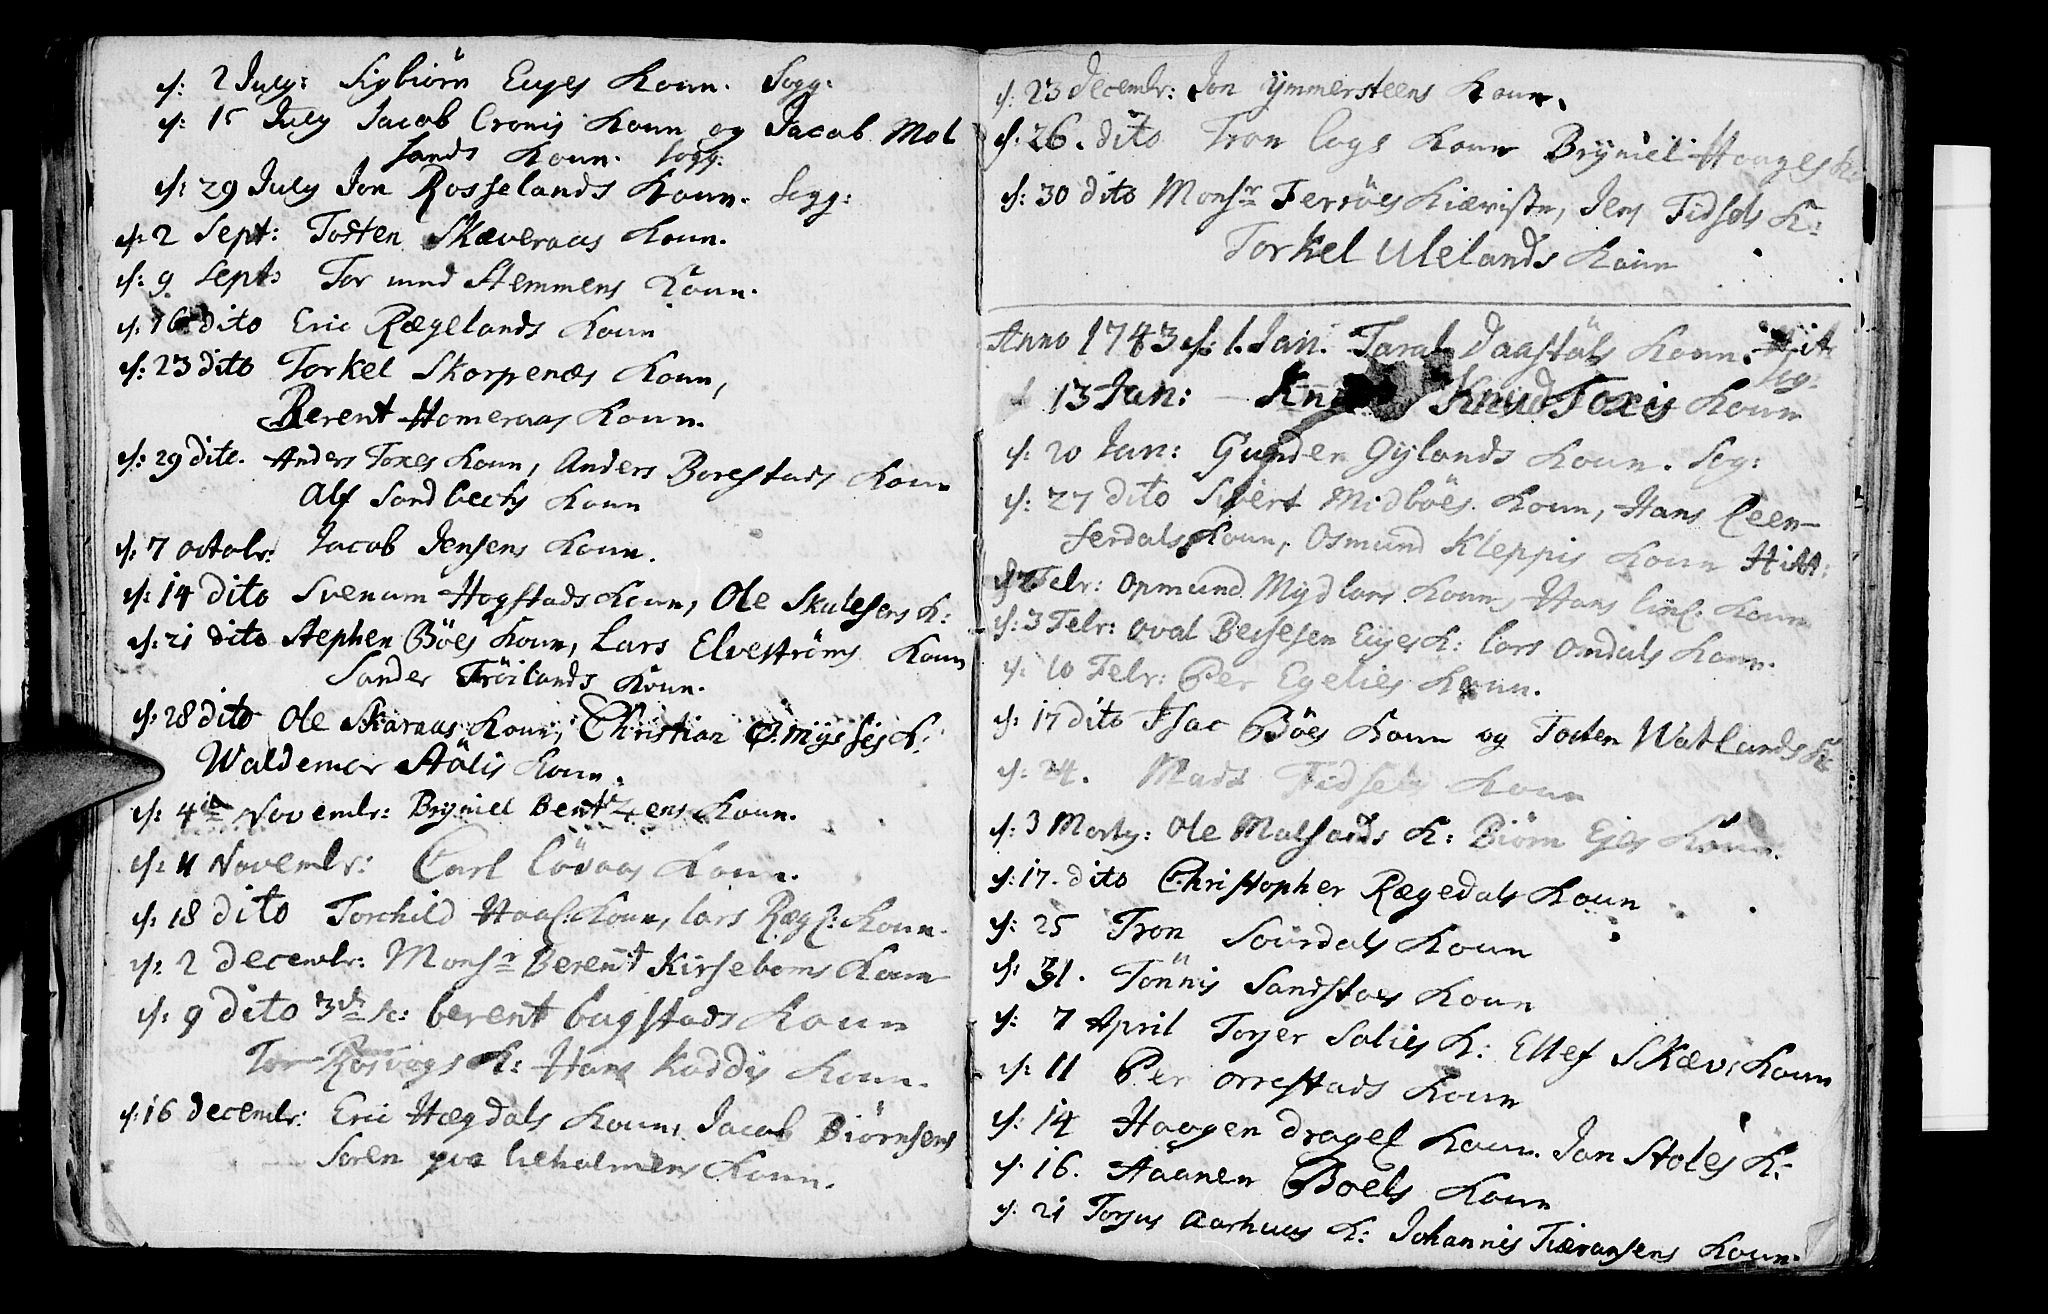 f: 2 July: Sigbiörn Eiges Koun. Sogg:
f: 15 July Jacob Cronis Koun og Jacob Mol
sands Koun. sogg:
f: 29 July Jon Rosselands Koun. Sogg:
f: 2 Sept: Tosten Skæveraas Koun.
f: 9 Sept: Tormund Stemmens Koun.
f: 16 dito Eric Rægelands Koun
f: 23 dito Torkel Skorpenæs Koun,
Berent Homeraas Koun.
f: 29 dito. Anders Toxes Koun, Anders Borestads Koun
Alf Sandbechs Koun
f: 7 octobr: Jacob Jensens Koun.
f: 14 dito Svenum Hogstads Koun, Ole Skulesens K:
f: 21 dito Stephen Böes Koun, Lars Elveströms Koun
Sander Fröilands Koun.
f: 28 dito Ole Skaraas Koun, Christian K:
Waldemar Stölis Koun.
f: 4 Novembr: Bryniel Bentzens Koun.
f: 11 Novembr: Carl Lövaas Koun.
f: 18 dito Torchild Haaf: Koun, Lars Rægl: Koun.
f: 2 decembr: Monsr Berent Kirseboms Koun
f: 9 dito 3 berent bugstads Koun
Tor Rosvogs K: Hans Koddis Koun.
f: 16 decembr: Eric Hægdals Koun, Jacob Biörnsens
Soren paa Koun.
f: 23 decembr: Jon Ymmersteens Koun.
f: 26. dito Tron Logs Koun Bryniel Haages K:
f: 30 dito Monsr Ferröes Kiæriste, Jens Tidsels K:
Torkel Ulelands Koun
Anno 1743 f: 1. Jan: Taral Daastöls Koun. Hit
sog:
13 Jan: Knud Toxis Koun
f: 20 Jan: Gunden Gylands Koun. Sog:
f: 27 dito Sivert Midböes Koun, Hans Leen-
ferdals Koun, Osmund Kleppis Koun Hitt:
f: 2 Febr: Opmund Mydlars Koun, Hans Koun
f: 3 Febr: Oval Bersesen Eiges K: Lars Omdals Koun.
f: 10 Febr: Per Egelies Koun.
f: 17 dito Isac Böes Koun og Tosten Watlands K:
f: 24. Mads Tidsels Koun
f: 3 Marty: Ole Malsands K: Biörn Ejes Koun.
f: 17. dito Christopher Rægedals Koun
f: 25 Tron Sourdals Koun
f: 31. Tönnis Sandstoes Koun
f: 7 April Torjer Solies K: Ellef Skæv: Koun
f: 11 Per orrestads Koun
f: 14 Haagen dragef Koun. Jon Stoles K:
f: 16. Haanen Boels Koun
f: 21 Torjus Aarhuus K: Johannis Tiæransens Koun.